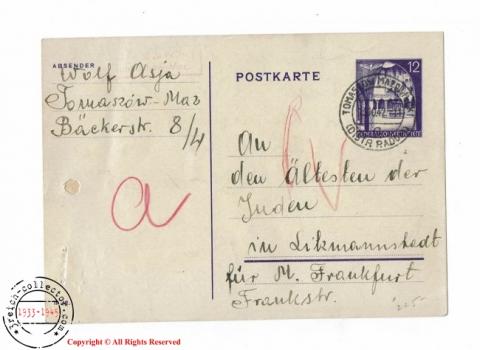 ABSENDER
Wolf Asja
Tomaszów-Maz
Bäckerstr. 8/4
POSTKARTE
12
TOMASZOW
(DISTR RADOM)
An
den Ältesten der
Juden
in Likmannstedt
für M. Frankfurt
Frankstr.
a
3reich-collector.com
1933-1945
Copyright © All Rights Reserved